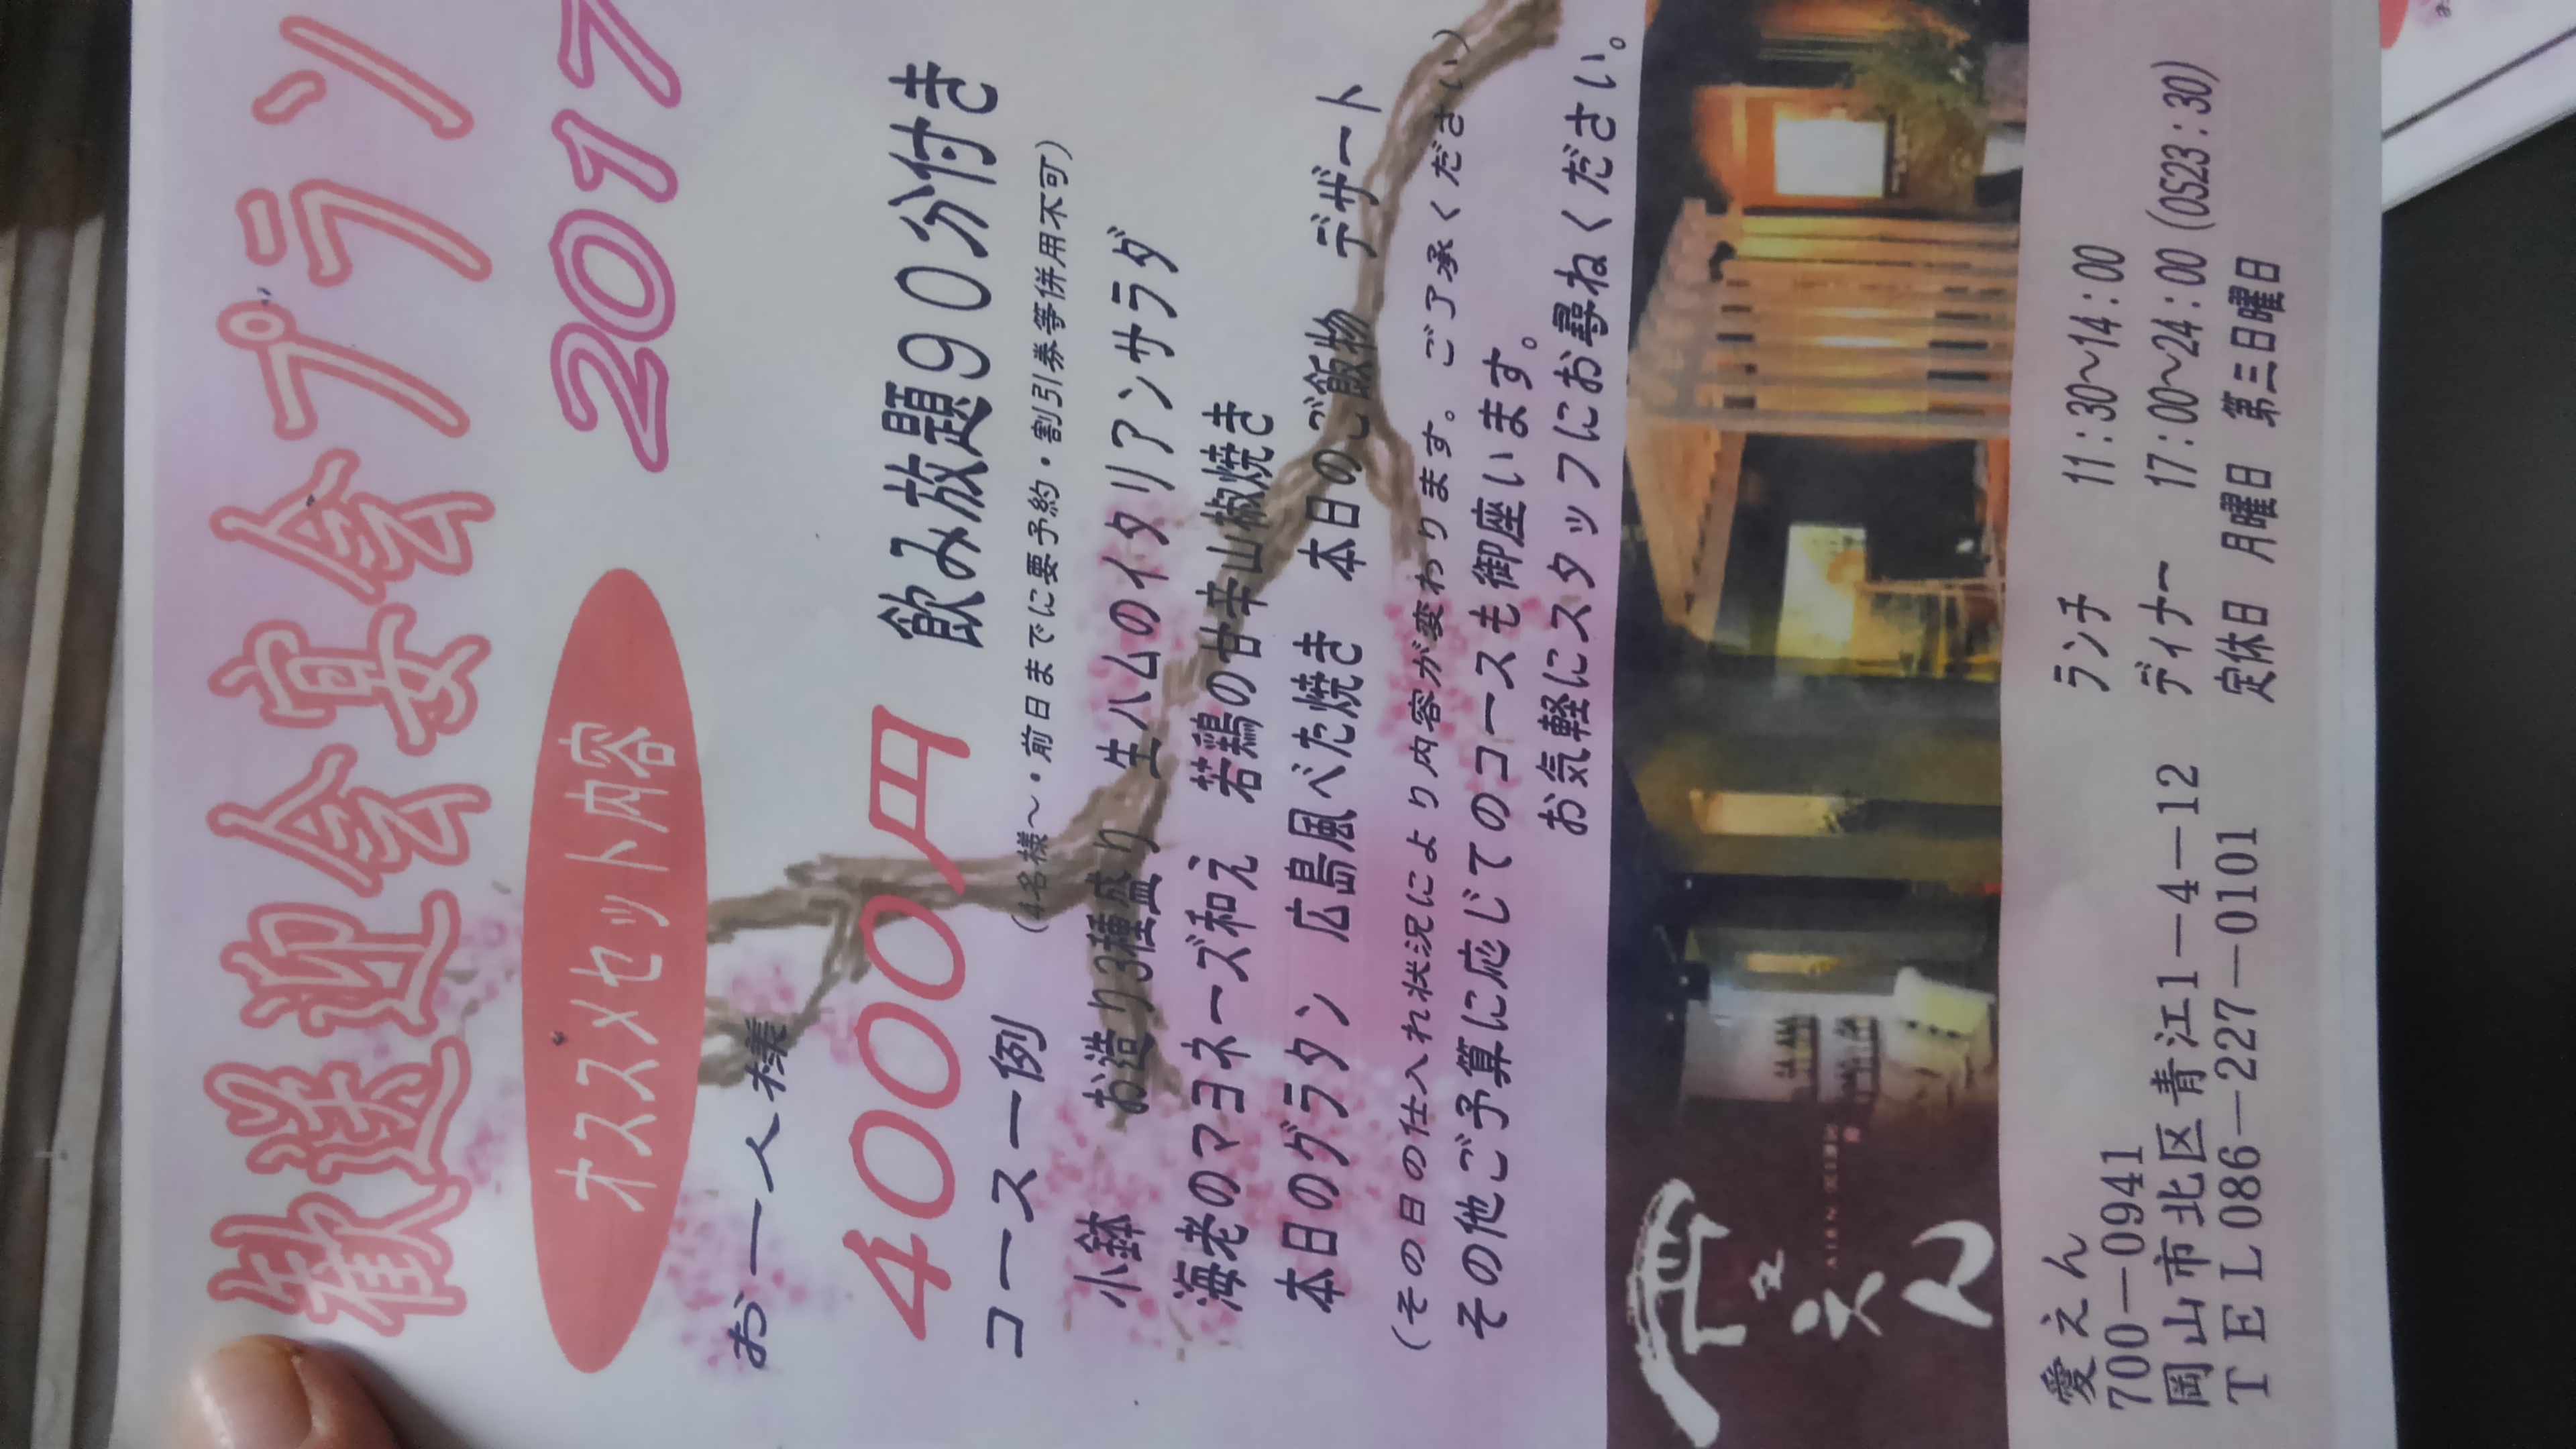 歓送迎会宴会プラン
2017
オススメセット内容
お一人様
4000円 飲み放題90分付き
(4名様～・前日までに要予約・割引券等併用不可)
コース一例
小鉢 お造り3種盛り 生ハムのイタリアンサラダ
海老のマヨネーズ和え 若鶏の甘辛山椒焼き
本日のグラタン 広島風べた焼き 本日のご飯物 デザート
(その日の仕入れ状況により内容が変わります。ご了承ください)
その他ご予算に応じてのコースも御座います。
お気軽にスタッフにお尋ねください。
愛えん
愛えん
700－0941
岡山市北区青江1－4－12
TEL086－227－0101
ランチ 11:30～14:00
ディナー 17:00～24:00 (OS23:30)
定休日 月曜日 第三日曜日